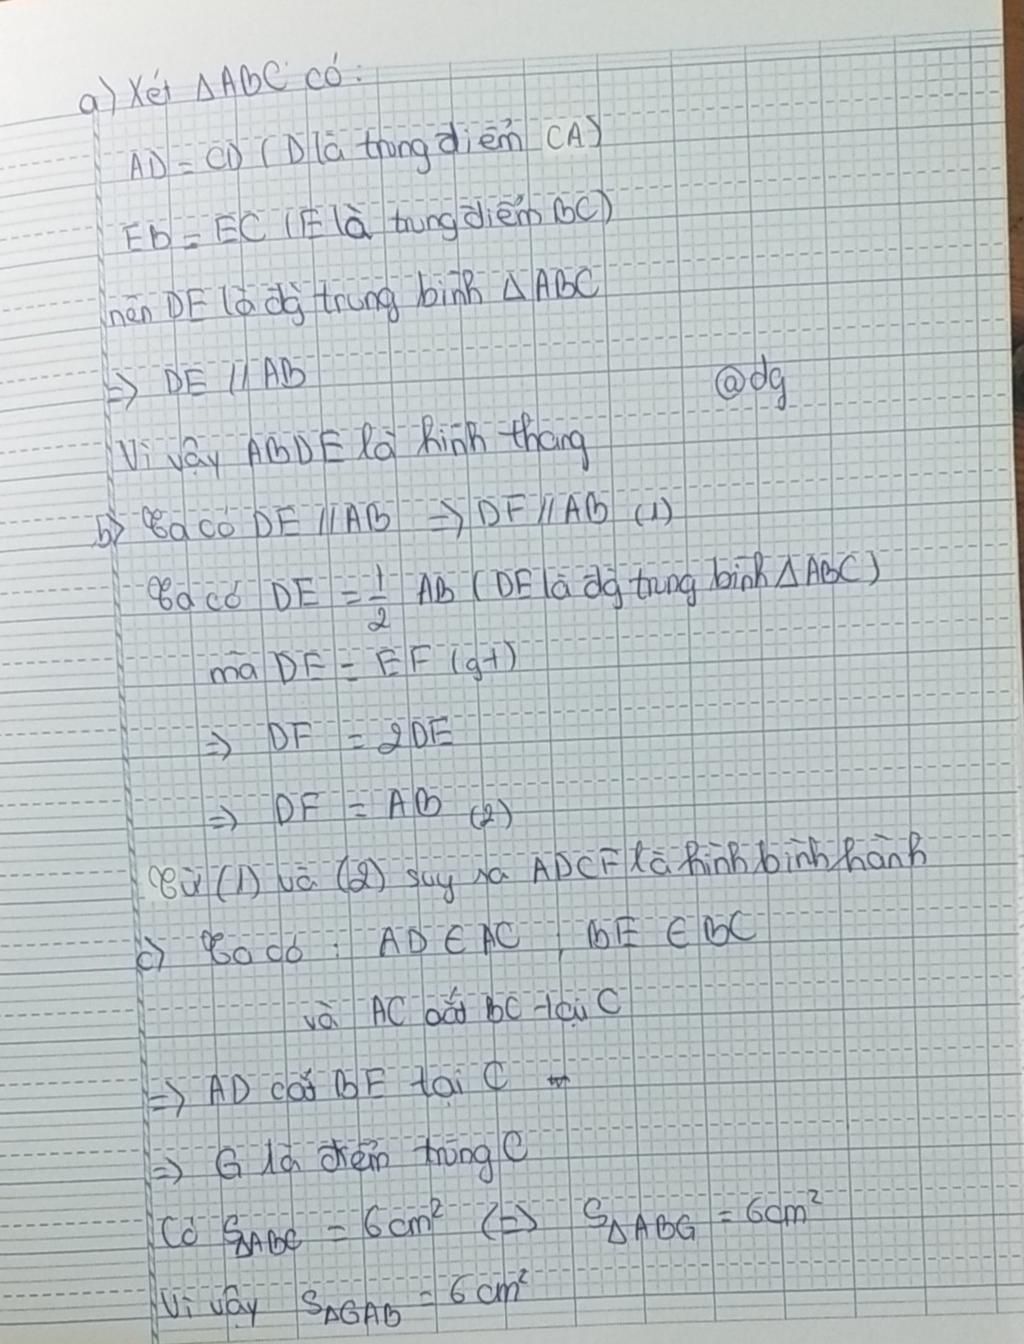 a) Xét ΔABC có:
AD = CD (D là trung điểm CA)
EB = EC (E là trung điểm BC)
nên DE là đg trung bình ΔABC
=> DE // AB
@dg
Vì vậy ABDE là hình thang
b) Ta có DE // AB => DF // AB (1)
Ta có DE = 1/2 AB (DE là đg trung bình ΔABC)
mà DE = EF (gt)
=> DF = 2DE
=> DF = AB (2)
Từ (1) và (2) suy ra ADCF là hình bình hành
c) Ta có : AD ∈ AC , BE ∈ BC
và AC cắt BC tại C
=> AD cắt BE tại C
=> G là điểm trùng C
Có SΔABC = 6cm² (=> SΔABG = 6cm²
Vì vậy SΔGAB = 6cm²